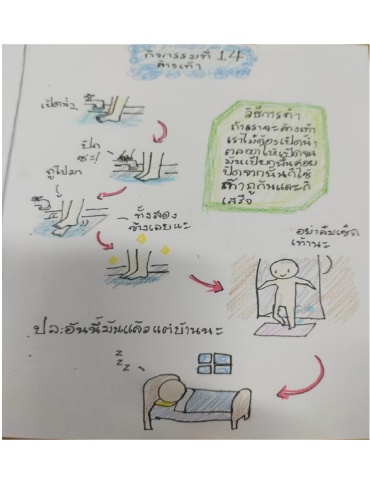 กิจกรรมที่ 14
ล้างเท้า
เปิดน้ำ
ปิด
ซะ!
ถูไปมา
ทั้งสอง
ข้างเลยนะ
วิธีการทำ
ถ้าเราจะล้างเท้า
เราไม่ต้องเปิดน้ำ
ตลอดให้เปิดจน
มันเปียกนั้นค่อย
ปิดจากนั้นก็ใช้
เท้าถูกันและก็
เสร็จ
อย่าลืมเช็ด
เท้านะ
ปล:อันนี้มันแล้วแต่บ้านนะ
z
z
z